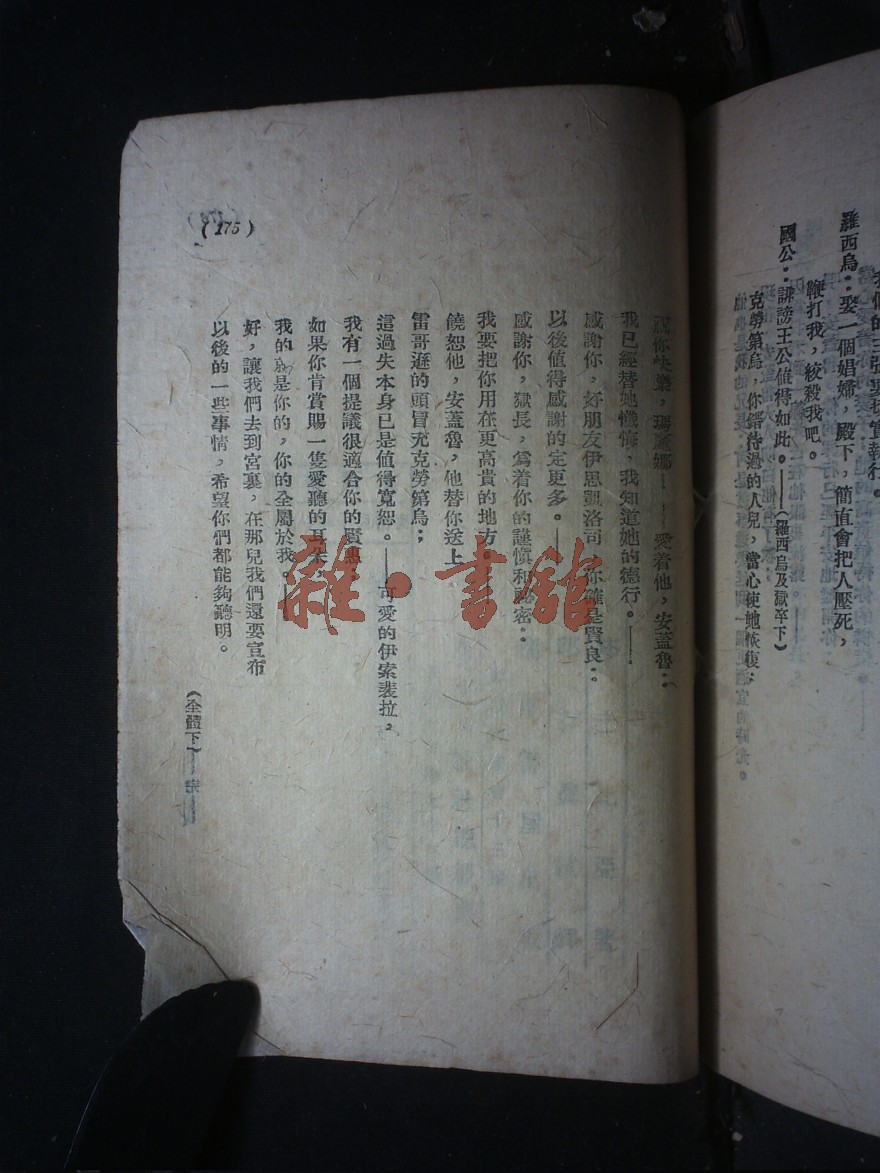 羅西烏：娶一個娼婦，殿下，簡直會把人壓死，
鞭打我，絞殺我吧。
國公：誹謗王公值得如此。——（羅西烏及獄卒下）
克勞第烏，你錯待過的人兒，當心使她恢復；
祝你快樂，瑪麗娜——愛着他，安蓋魯：
我已經替她懺悔，我知道她的德行。——
感謝你，好朋友伊思凱洛司，你確是賢良：。
以後值得感謝的定更多。——
感謝你，獄長，爲着你的謹慎和秘密：
我要把你用在更高貴的地方。
饒恕他，安蓋魯，他替你送上
雷哥遜的頭冒充克勞第烏；
這過失本身已是值得寬恕。——可愛的伊索裴拉，
我有一個提議很適合你的賢惠
如果你肯賞賜一隻愛聽的耳朵，
我的就是你的，你的全屬於我。
好，讓我們去到宮裏，在那兒我們還要宣布
以後的一些事情，希望你們都能夠聽明。
（全體下）——完——
(175)
雜·書館